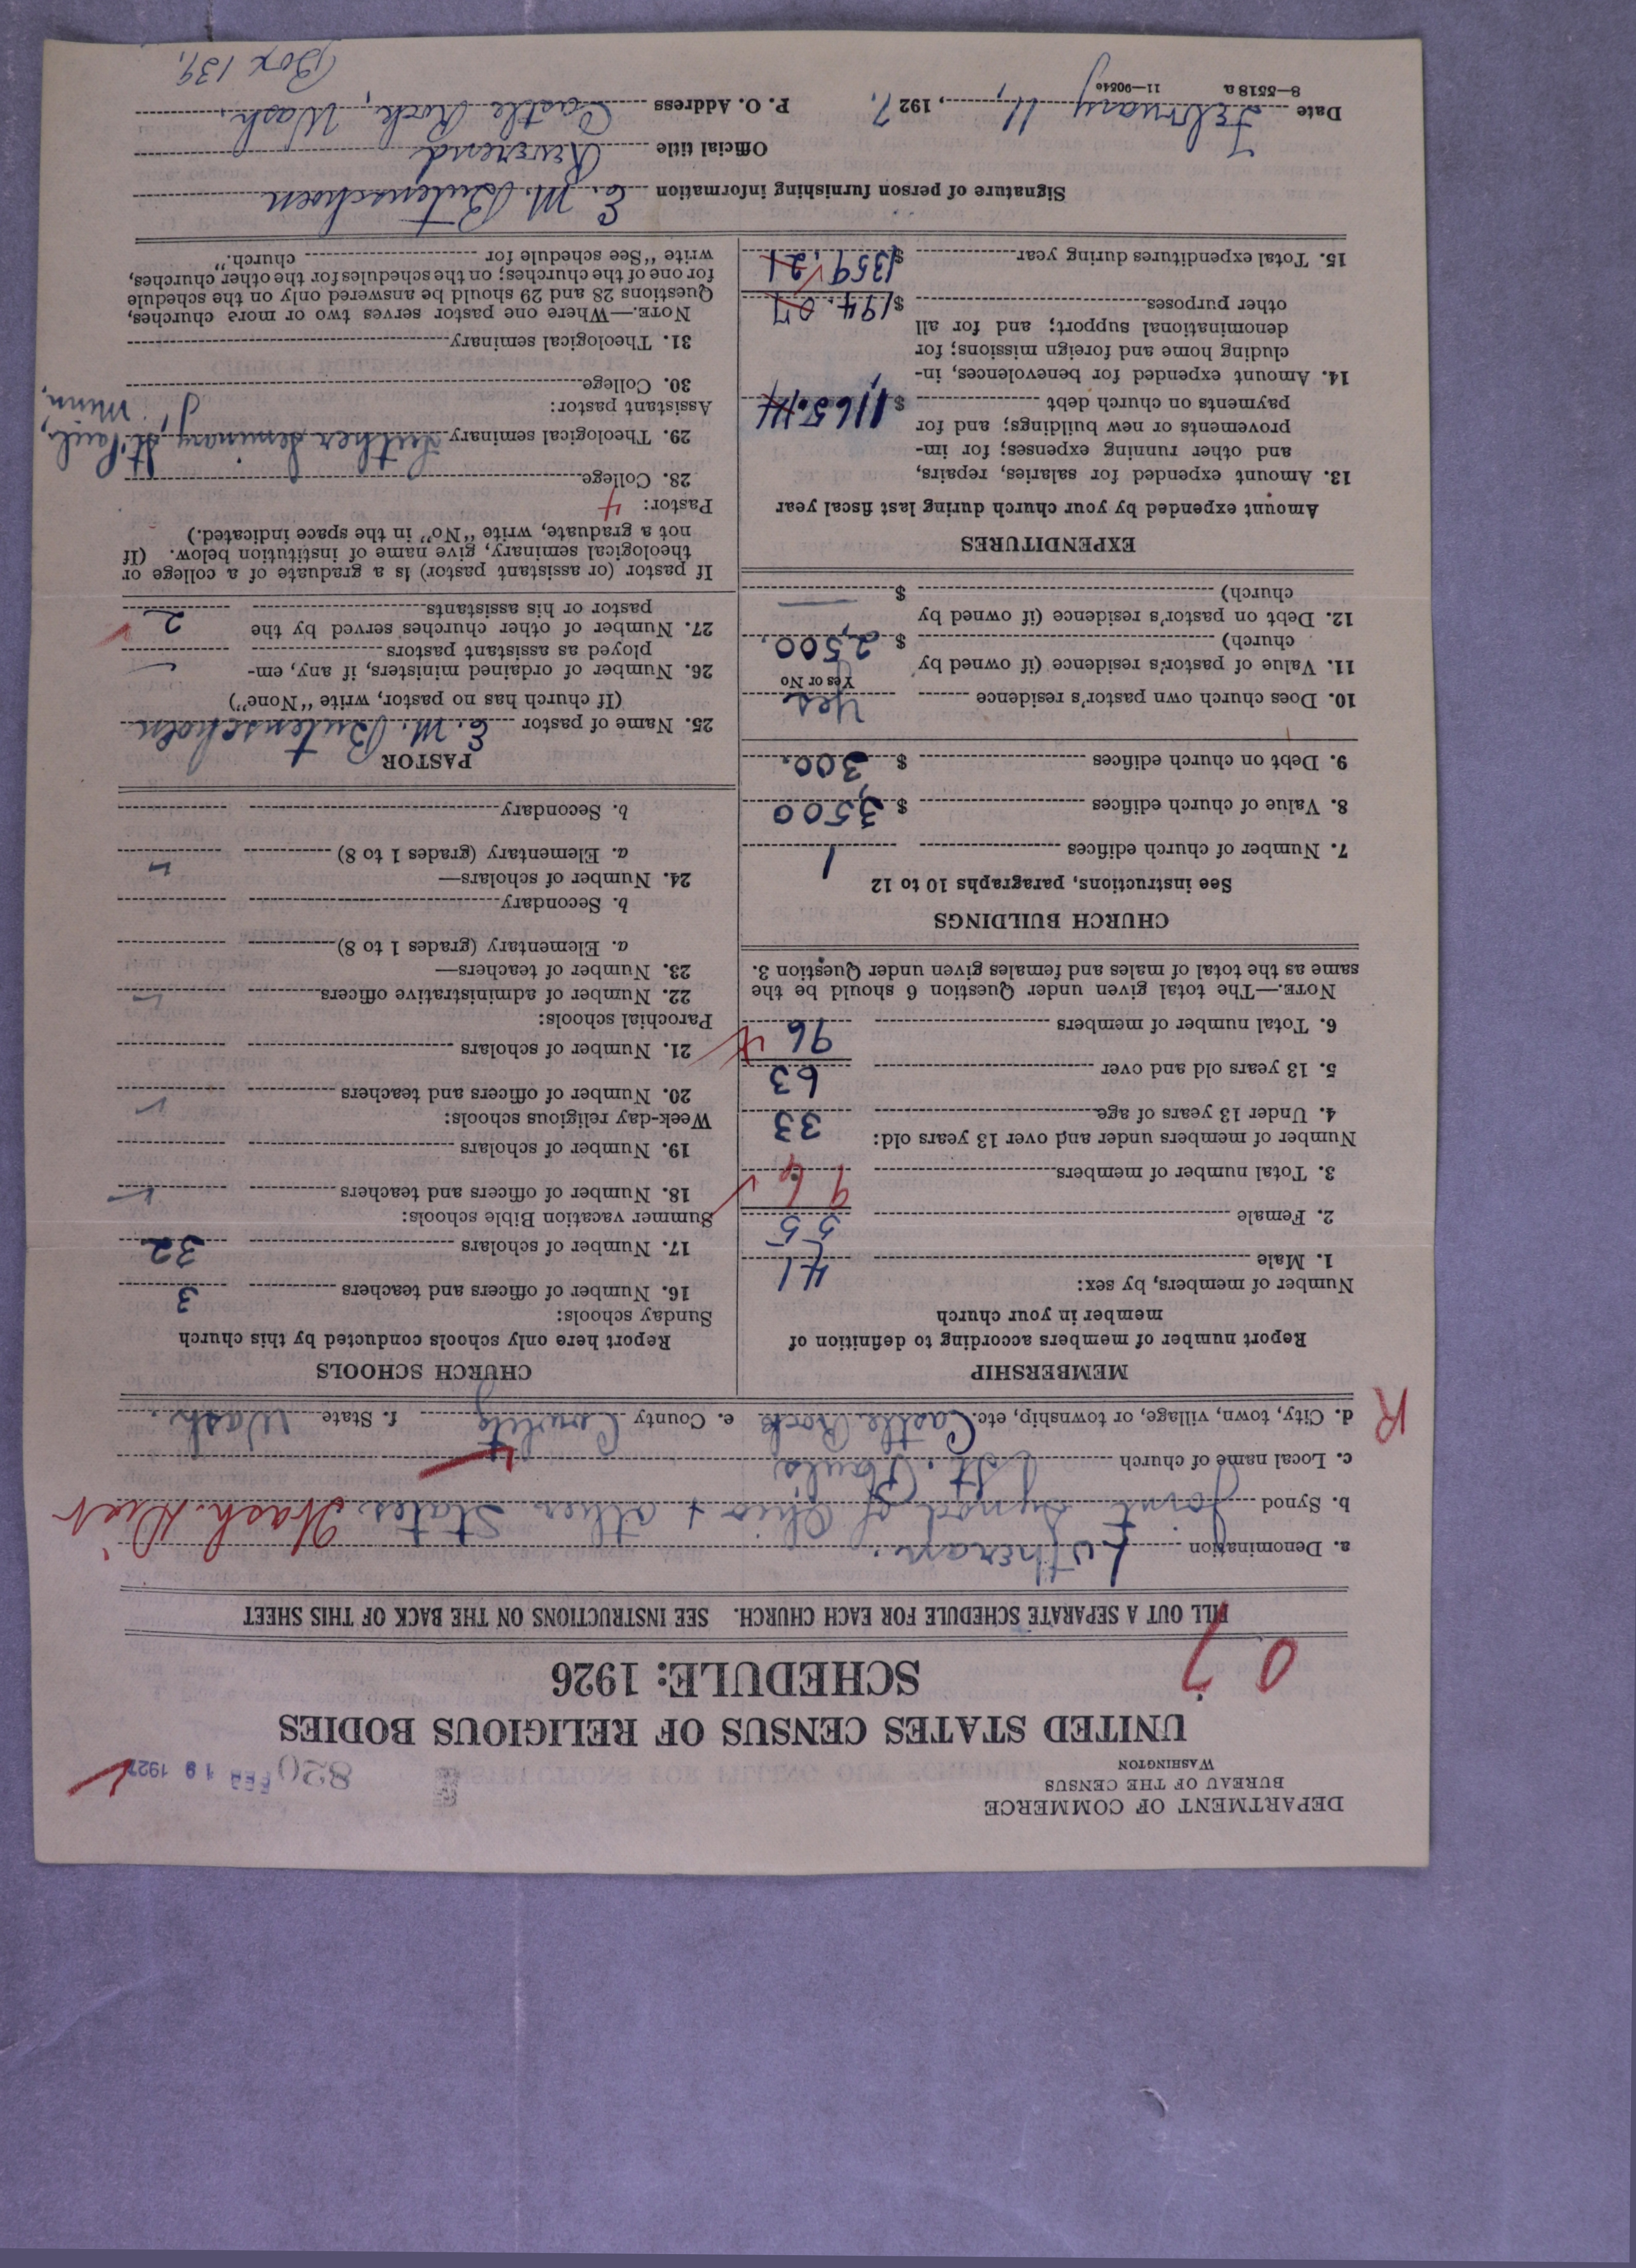 DEPARTMENT OF COMMERCE
BUREAU OF THE CENSUS
WASHINGTON
820
FEB 19 1927
UNITED STATES CENSUS OF RELIGIOUS BODIES
SCHEDULE: 1926
07
FILL OUT A SEPARATE SCHEDULE FOR EACH CHURCH. SEE INSTRUCTIONS ON THE BACK OF THIS SHEET
a. Denomination Lutheran.
b. Synod Joint Synod of Ohio + other States. Wash. Dist
c. Local name of church St. Pauls
R
d. City, town, village, or township, etc. Castle Rock e. County Cowlitz f. State Wash.
MEMBERSHIP
Report number of members according to definition of
member in your church
Number of members, by sex:
1. Male 41
2. Female 55
3. Total number of members 96
Number of members under and over 13 years old:
4. Under 13 years of age 33
5. 13 years old and over 63
6. Total number of members 96
NOTE.—The total given under Question 6 should be the
same as the total of males and females given under Question 3.
CHURCH BUILDINGS
See instructions, paragraphs 10 to 12
7. Number of church edifices 1
8. Value of church edifices $ 3,500
9. Debt on church edifices $ 300.
10. Does church own pastor's residence Yes
Yes or No
11. Value of pastor's residence (if owned by
church) $ 2,500.
12. Debt on pastor's residence (if owned by
church) $ —
EXPENDITURES
Amount expended by your church during last fiscal year
13. Amount expended for salaries, repairs,
and other running expenses; for im-
provements or new buildings; and for
payments on church debt $ 1,165.14
14. Amount expended for benevolences, in-
cluding home and foreign missions; for
denominational support; and for all
other purposes $ 194.07
15. Total expenditures during year $ 1359.21
CHURCH SCHOOLS
Report here only schools conducted by this church
Sunday schools:
16. Number of officers and teachers 3
17. Number of scholars 32
Summer vacation Bible schools:
18. Number of officers and teachers
19. Number of scholars
Week-day religious schools:
20. Number of officers and teachers
21. Number of scholars
Parochial schools:
22. Number of administrative officers
23. Number of teachers—
a. Elementary (grades 1 to 8)
b. Secondary
24. Number of scholars—
a. Elementary (grades 1 to 8)
b. Secondary
PASTOR
25. Name of pastor E. M. Butenschoen
(If church has no pastor, write "None")
26. Number of ordained ministers, if any, em-
ployed as assistant pastors —
27. Number of other churches served by the
pastor or his assistants 2
If pastor (or assistant pastor) is a graduate of a college or
theological seminary, give name of institution below. (If
not a graduate, write "No" in the space indicated.)
Pastor: 4
28. College
29. Theological seminary Luther Seminary, St. Paul, Minn.
Assistant pastor:
30. College
31. Theological seminary
NOTE.—Where one pastor serves two or more churches,
Questions 28 and 29 should be answered only on the schedule
for one of the churches; on the schedules for the other churches,
write "See schedule for church."
Signature of person furnishing information E. M. Butenschoen
Official title Reverend
Date February 11, 1927. P. O. Address Castle Rock, Wash.
8—5518 a 11—9054c
Box 139.